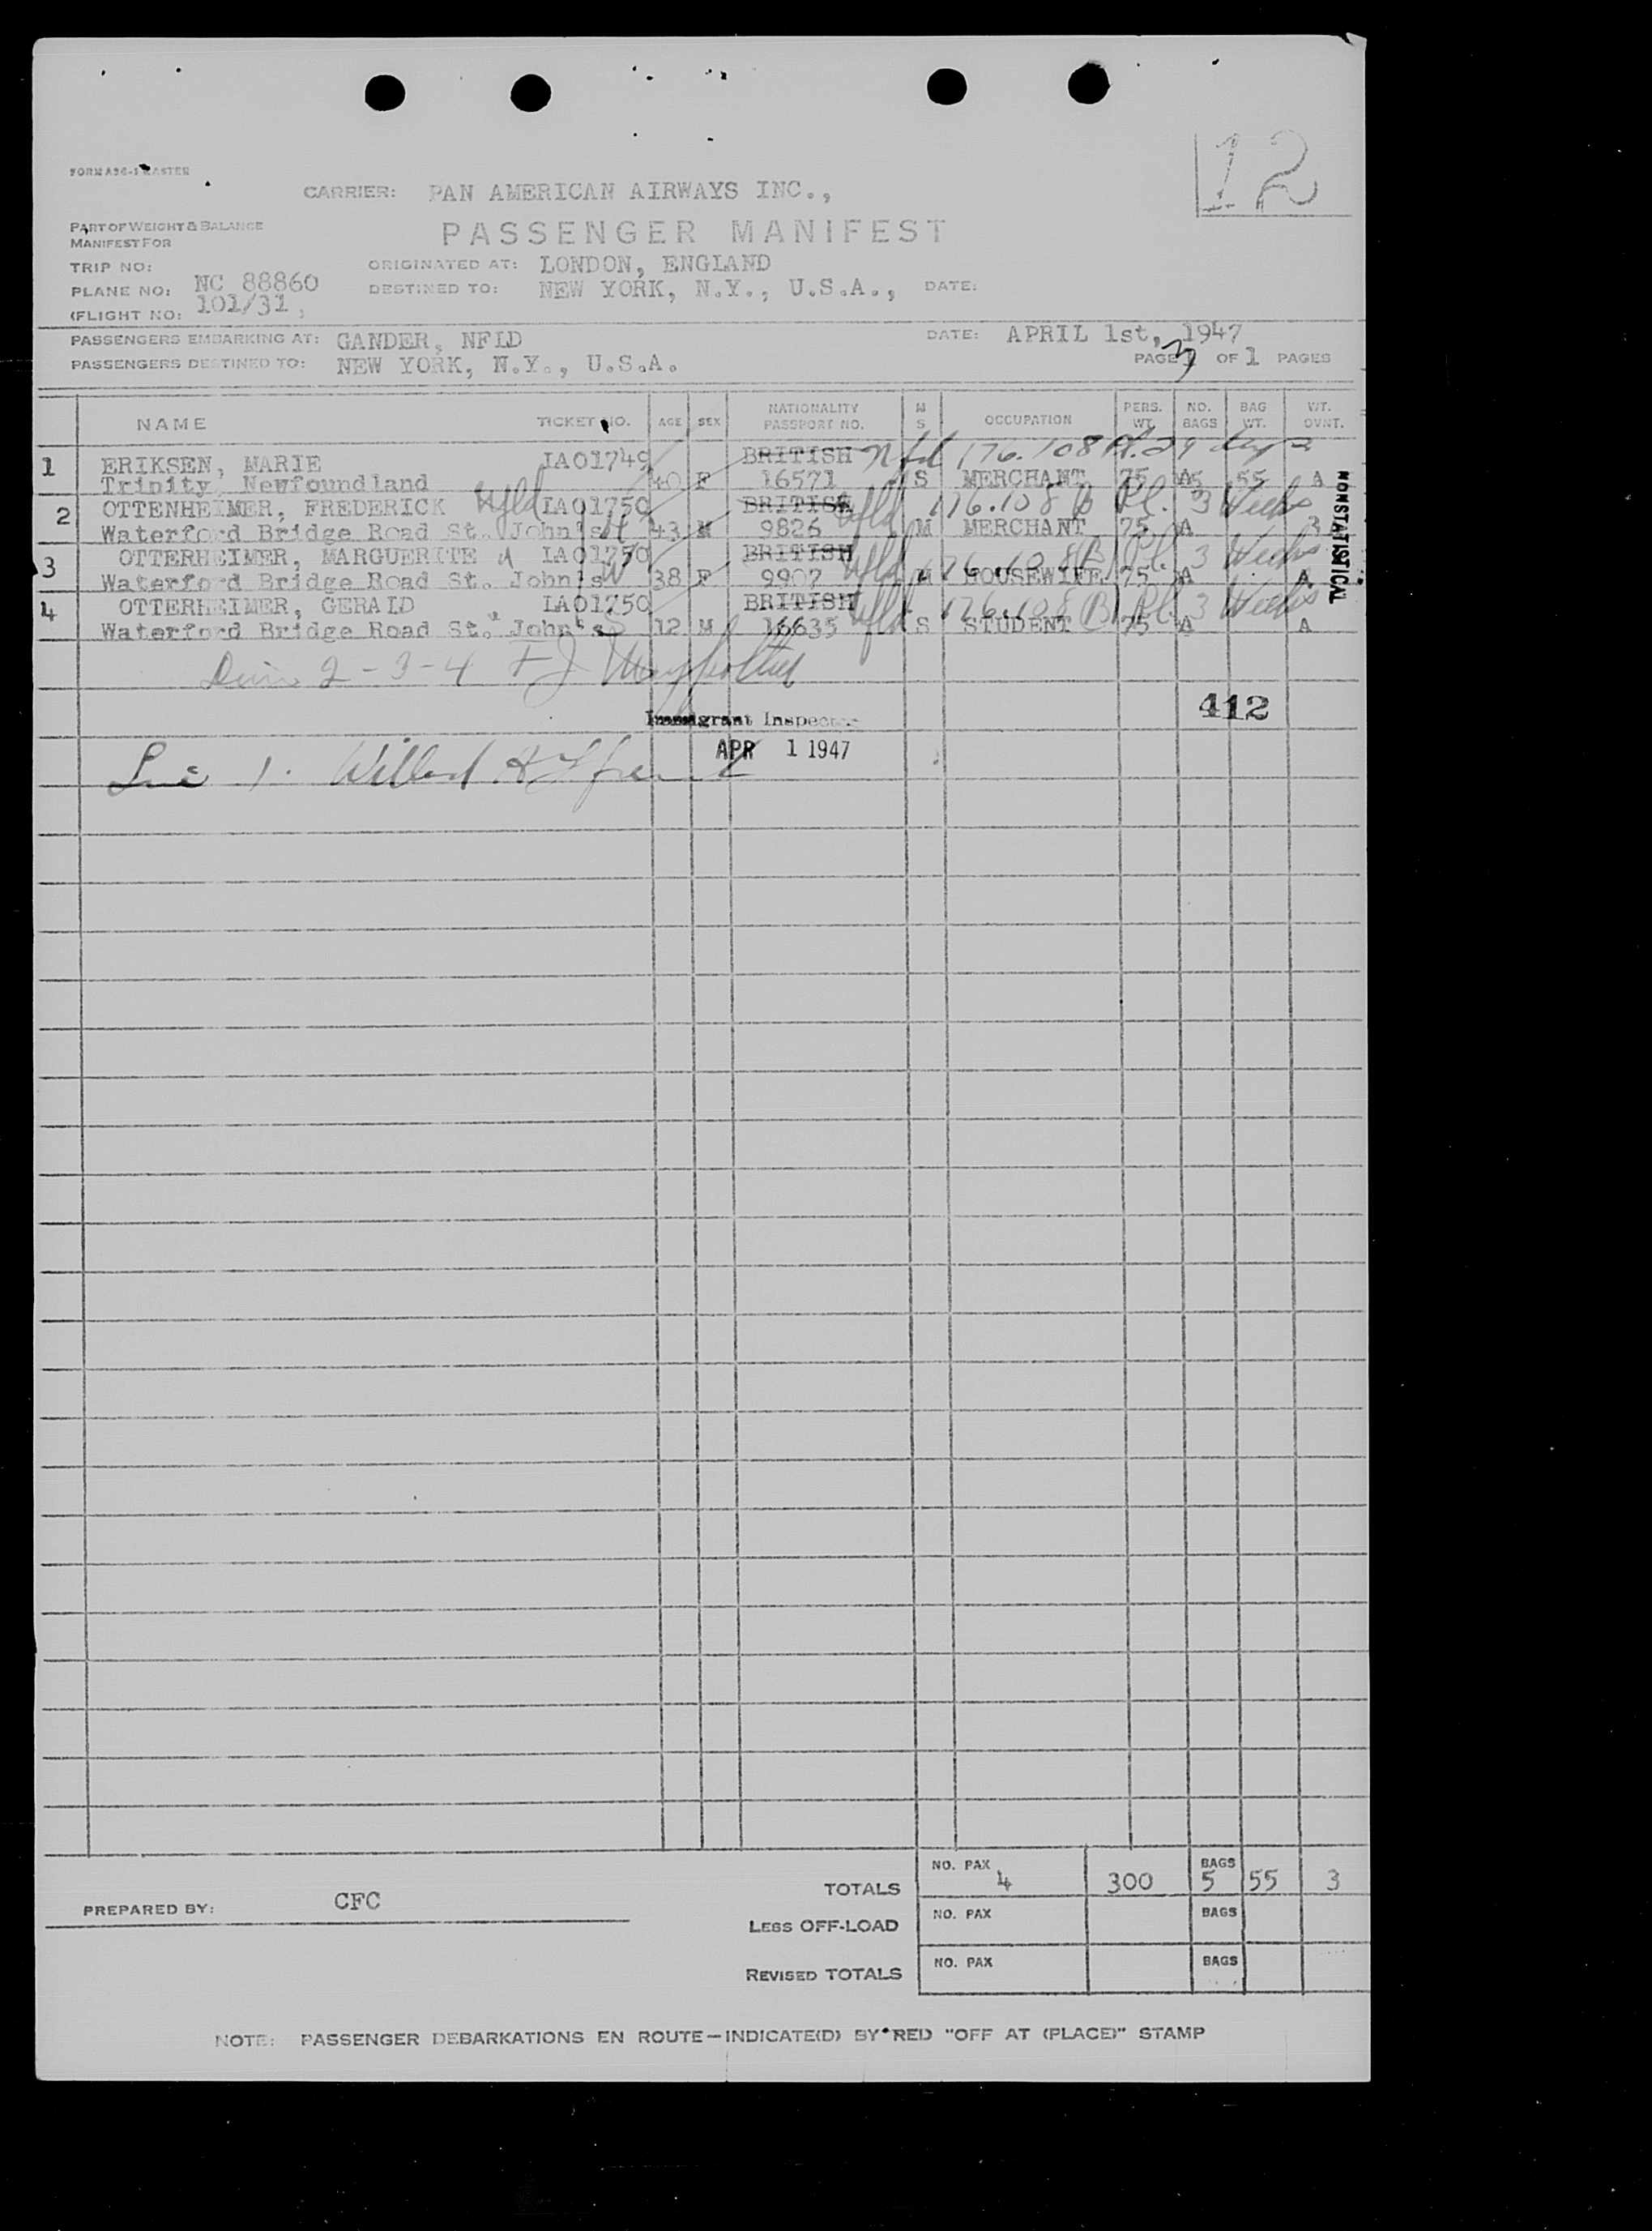 12
FORM A36-1 MASTER
CARRIER: PAN AMERICAN AIRWAYS INC.,
PART OF WEIGHT & BALANCE
MANIFEST FOR
PASSENGER MANIFEST
TRIP NO:
ORIGINATED AT: LONDON, ENGLAND
PLANE NO: NC 88860
DESTINED TO: NEW YORK, N.Y., U.S.A., DATE:
(FLIGHT NO: 101/31,
PASSENGERS EMBARKING AT: GANDER, NFLD DATE: APRIL 1st, 1947
PASSENGERS DESTINED TO: NEW YORK, N.Y., U.S.A. PAGE 3 OF 1 PAGES
NAME TICKET NO. AGE SEX NATIONALITY PASSPORT NO. M S OCCUPATION PERS. WT. NO. BAGS BAG WT. WT. OVNT.
1 ERIKSEN, MARIE IA01749 BRITISH Nfld 176.108 Pl. 29 days 3
Trinity, Newfoundland 40 F 16571 S MERCHANT 75 A5 55 A
2 OTTENHEIMER, FREDERICK Nfld IA01750 BRITISH Nfld 176.108 B Pl. 3 Weeks
Waterford Bridge Road St. John's 43 M 9826 M MERCHANT 75 A 3
3 OTTERHEIMER, MARGUERITE IA01750 BRITISH Nfld 176.108 B Pl. 3 Weeks
Waterford Bridge Road St. John's 38 F 9907 M HOUSEWIFE 75 A A
4 OTTERHEIMER, GERALD IA01750 BRITISH Nfld 176.108 B Pl. 3 Weeks
Waterford Bridge Road St. John's 12 M 16635 S STUDENT 75 A A
NONSTATISTICAL
2-3-4
412
Immigrant Inspector
APR 1 1947
1.
TOTALS NO. PAX 4 300 BAGS 5 55 3
PREPARED BY: CFC
LESS OFF-LOAD NO. PAX BAGS
REVISED TOTALS NO. PAX BAGS
NOTE: PASSENGER DEBARKATIONS EN ROUTE—INDICATE(D) BY RED "OFF AT (PLACE)" STAMP